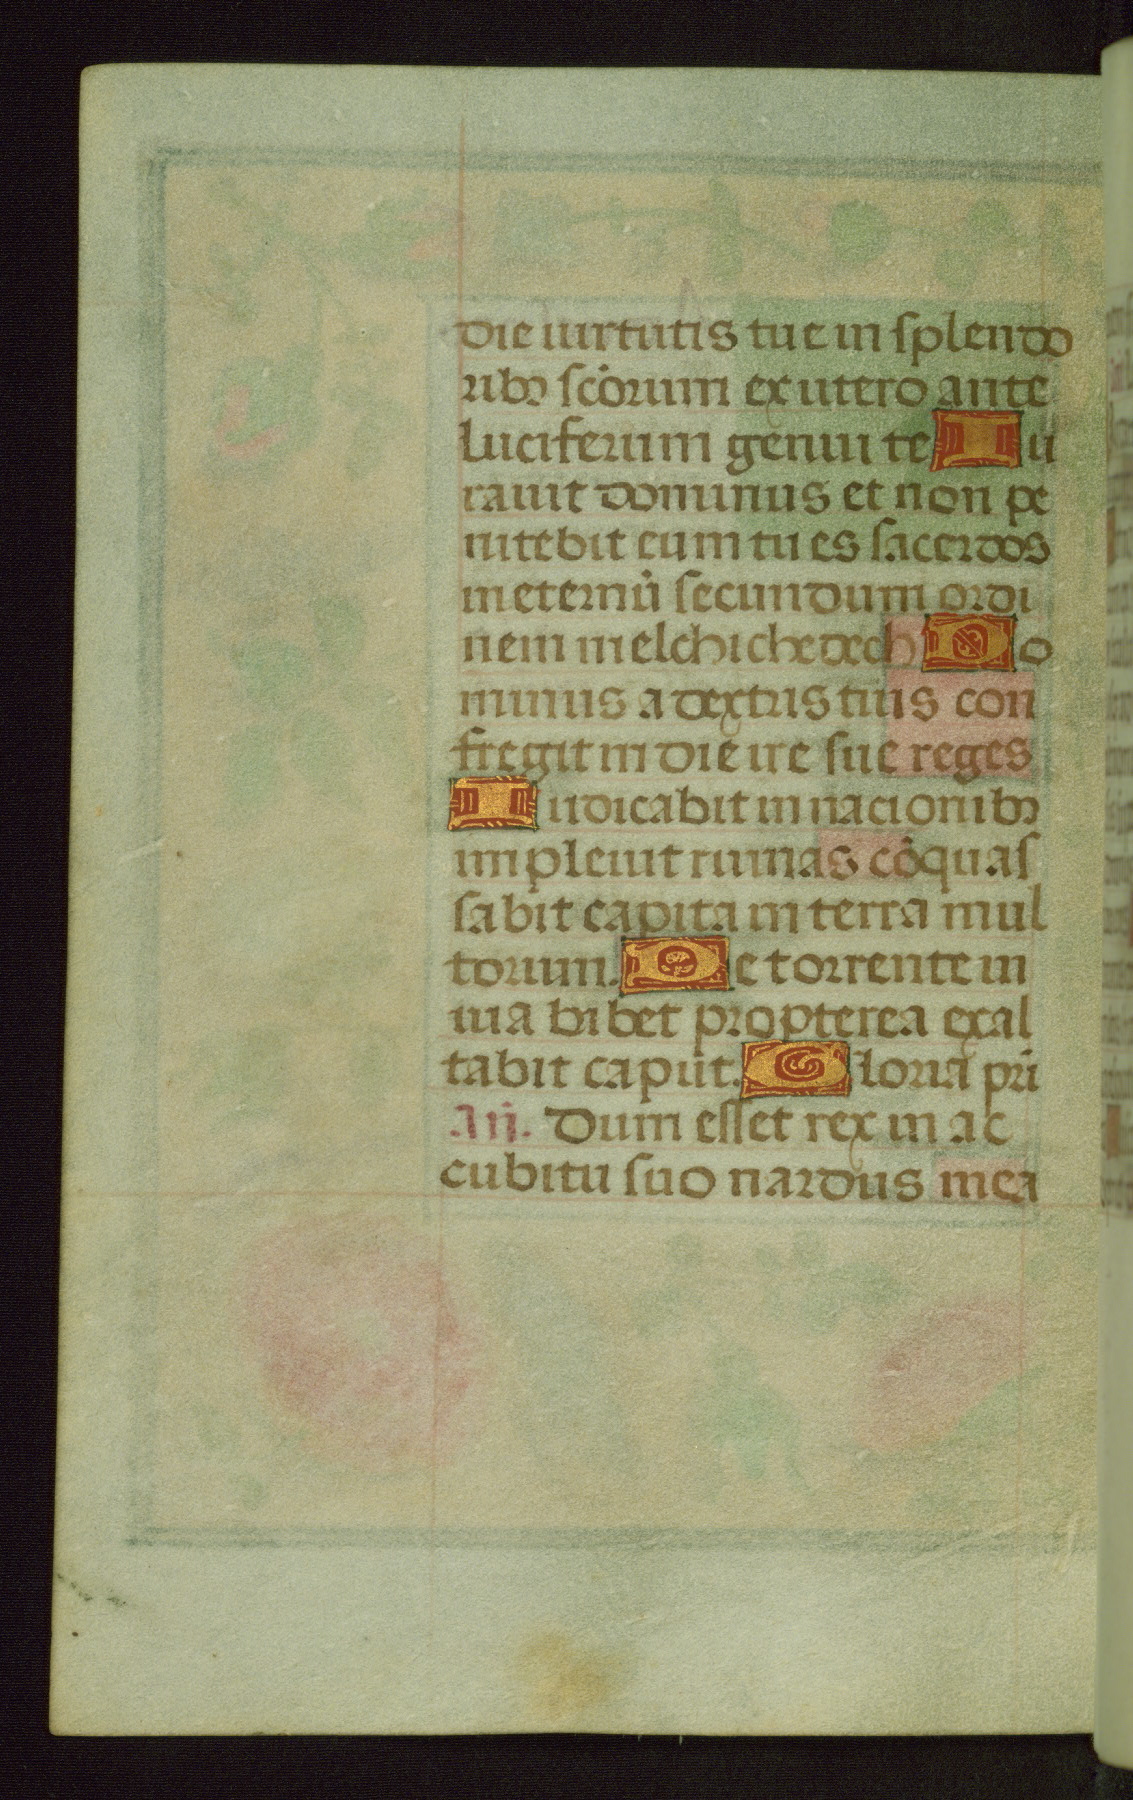 die uirtutis tue in splendo
ribꝫ scōrum ex utero ante
luciferum genui te Iu
rauit dominus et non pe
nitebit eum tu es sacerdos
in eternū secundum ordi
nem melchichedech Do
minus a dextris tuis con
fregit in die ire sue reges
Iudicabit in nacionibꝫ
impleuit ruinas cōquas
sabit capita in terra mul
torum. De torrente in
uia bibet propterea exal
tabit caput. Gloria pri̅
An̄. Dum esset rex in ac
cubitu suo nardus mea